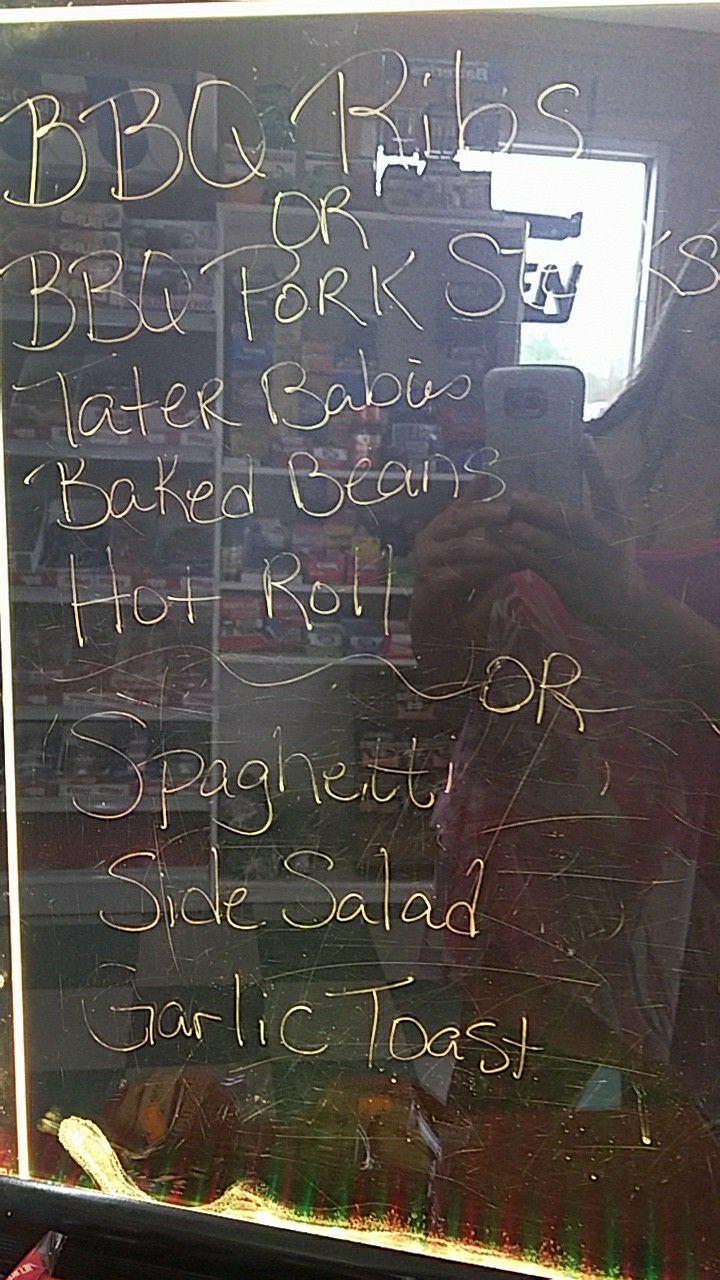 BBQ Ribs
OR
BBQ PORK Steaks
Tater Babies
Baked Beans
Hot Roll
OR
Spaghetti
Side Salad
Garlic Toast